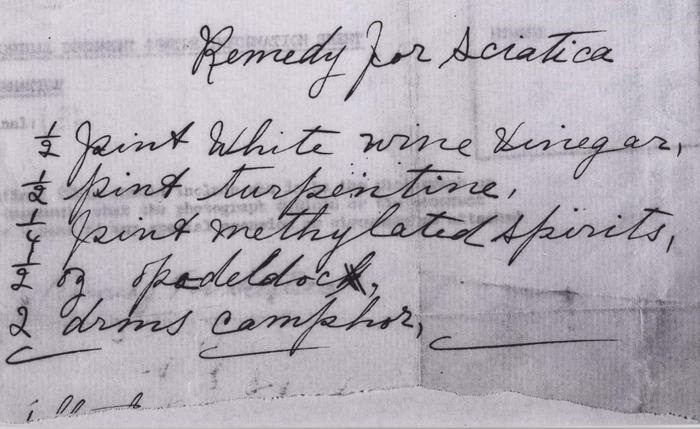 Remedy for Sciatica
½ pint White wine Vinegar,
½ pint turpentine,
¼ pint methylated spirits,
½ oz opodeldock,
2 drms camphor,